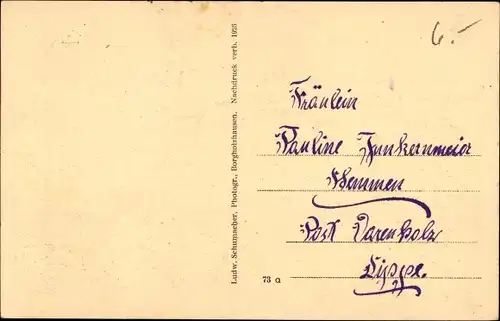 6.-
Ludw. Schumacher, Photogr., Borgholzhausen. Nachdruck verb. 1926
Fräulein
Pauline Junkermeier
Stemmen
Post Varenholz
Lippe.
73 a